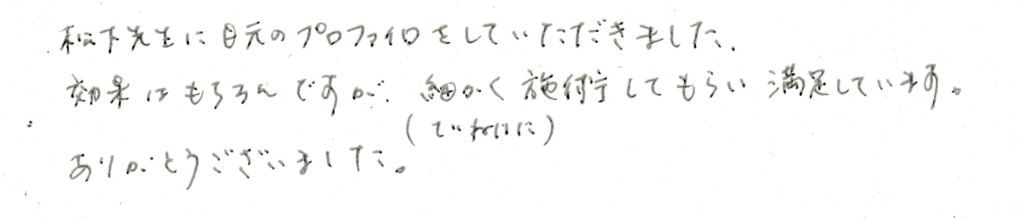 松下先生に目元のプロファイロをしていただきました.
効果はもちろんですが、細かく施術してもらい満足しています。
(ていねいに)
ありがとうございました。